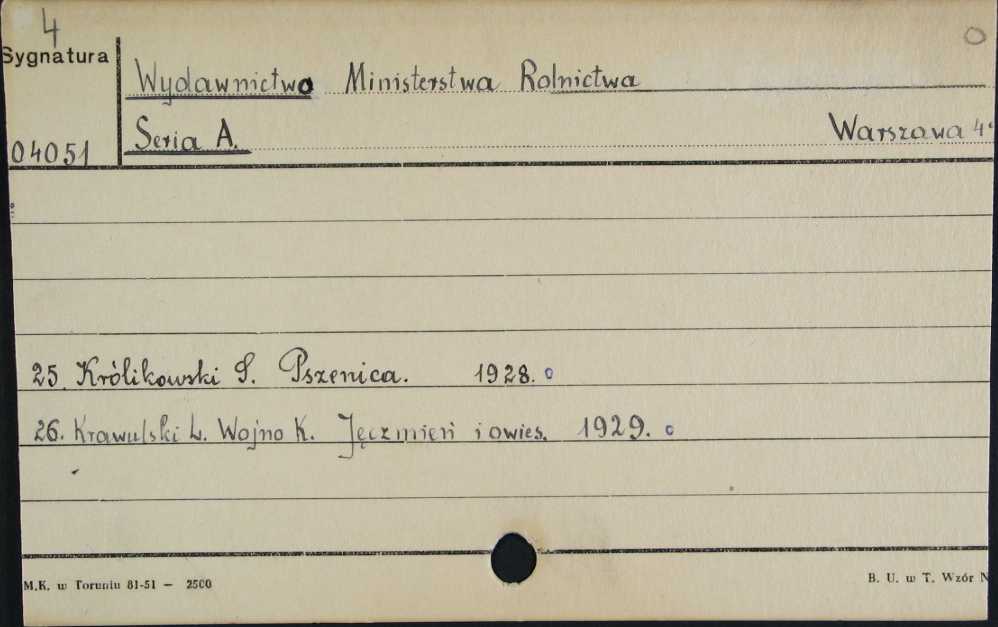 4
Sygnatura
Wydawnictwo Ministerstwa Rolnictwa
04051
Seria A.
Warszawa 4°
25. Królikowski S. Pszenica. 1928. o
26. Krawulski L. Wojno K. Jęczmień i owies. 1929. o
M.K. w Toruniu 81-51 — 2500
B. U. w T. Wzór N